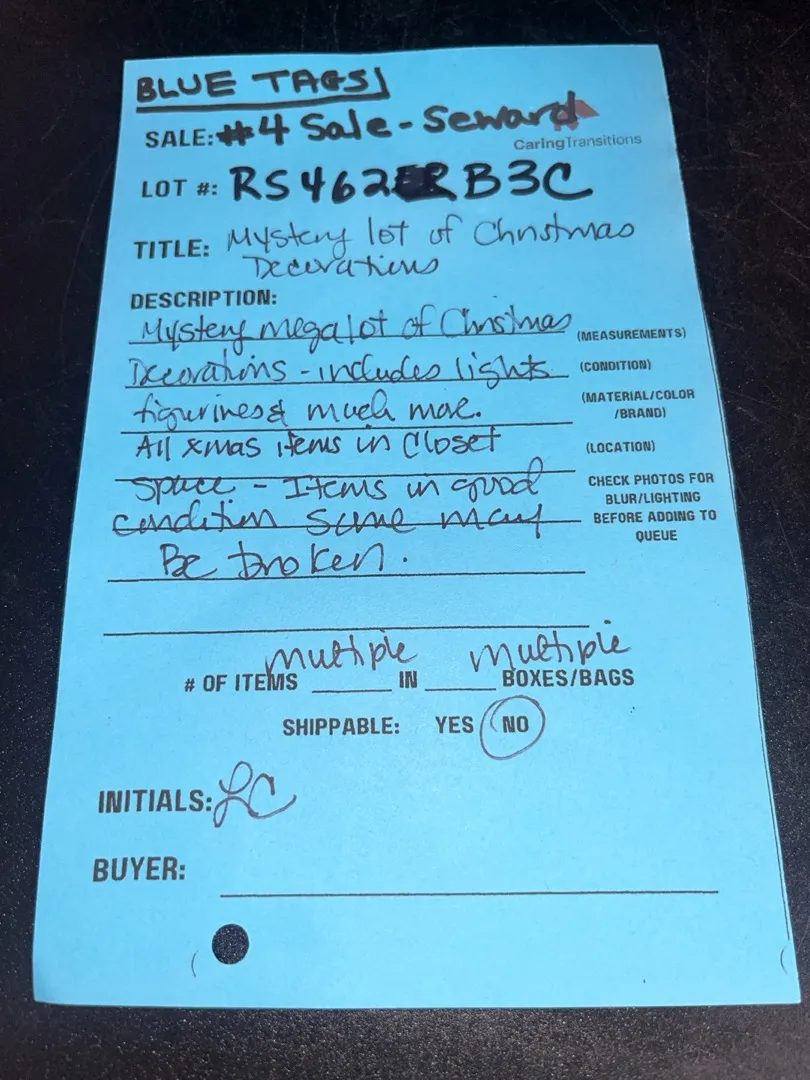 BLUE TAGS
SALE: #4 Sale - Seward
CaringTransitions
LOT #: RS462 RB3C
TITLE: Mystery lot of Christmas
Decorations
DESCRIPTION:
Mystery mega lot of Christmas (MEASUREMENTS)
Decorations - includes lights (CONDITION)
figurines & much more. (MATERIAL/COLOR
/BRAND)
All xmas items in Closet (LOCATION)
Space - Items in good CHECK PHOTOS FOR
BLUR/LIGHTING
condition some may BEFORE ADDING TO
QUEUE
Be broken.
# OF ITEMS multiple IN multiple BOXES/BAGS
SHIPPABLE: YES NO
INITIALS: LC
BUYER: